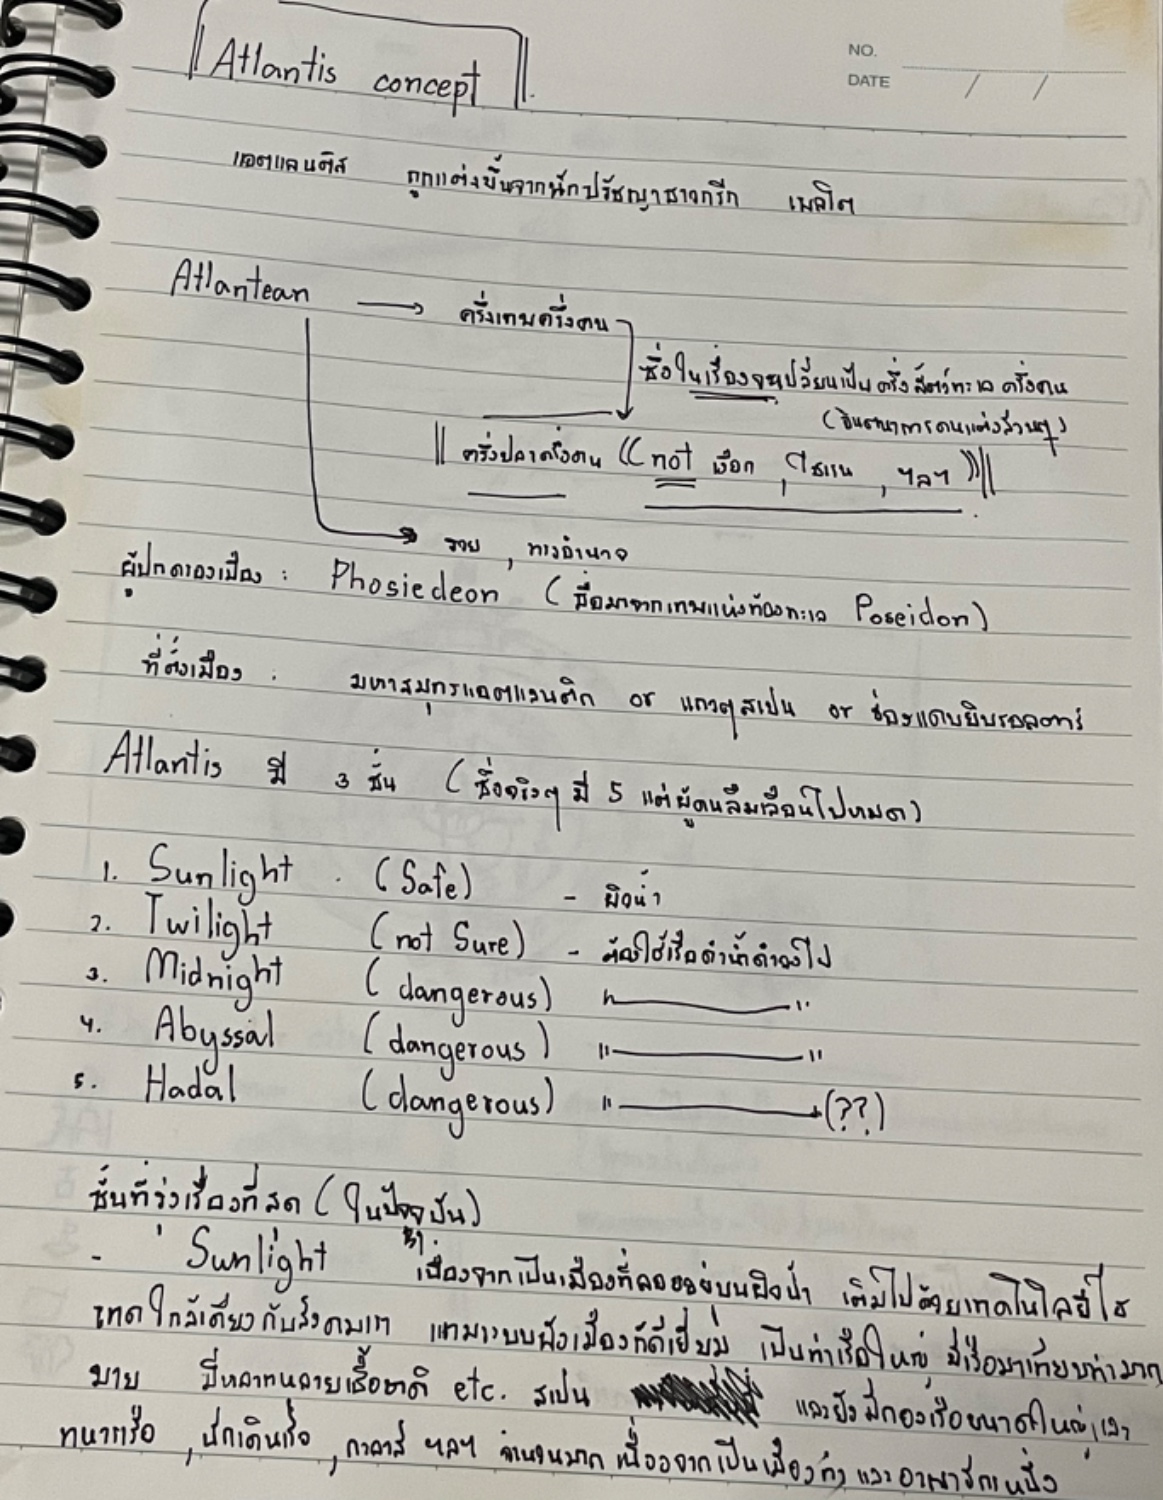 Atlantis concept
NO.
DATE / /
แอตแลนติส ถูกแต่งขึ้นจากนักปรัชญาชาวกรีก เพลโต
Atlantean → ครึ่งเทพครึ่งคน
ซึ่งในเรื่องจะเปลี่ยนเป็นครึ่งสัตว์ทะเลครึ่งคน
(จินตนาการคนแต่งล้วนๆ)
ครึ่งปลาครึ่งคน ((not เงือก, ไซเรน, ฯลฯ))
รวย, ทางอำนาจ
ผู้ปกครองเมือง : Phosiedeon (ชื่อมาจากเทพแห่งท้องทะเล Poseidon)
ที่ตั้งเมือง : มหาสมุทรแอตแลนติก or แถวๆสเปน or ช่องแคบยิบรอลตาร์
Atlantis มี 3 ชั้น (ซึ่งจริงๆมี 5 แต่ผู้คนลืมเลือนไปหมด)
1. Sunlight (Safe) - ผิวน้ำ
2. Twilight (not Sure) - ต้องใช้เรือดำน้ำดำลงไป
3. Midnight (dangerous) " "
4. Abyssal (dangerous) " "
5. Hadal (dangerous) " → (??)
ชั้นที่รุ่งเรืองที่สุด (ในปัจจุบัน)
- Sunlight เนื่องจากเป็นเมืองที่ลอยอยู่บนผิวน้ำ เต็มไปด้วยเทคโนโลยีไฮ
เทคใกล้เคียงกับสังคมเรา แถมระบบผังเมืองก็ดีเยี่ยม เป็นท่าเรือใหญ่ มีเรือมาเทียบท่ามาก
มาย มีหลากหลายเชื้อชาติ etc. สเปน และยังมีกองเรือขนาดใหญ่,
ทหารเรือ, นักเดินเรือ, กะลาสี ฯลฯ จำนวนมาก เนื่องจากเป็นเมือง และอาณาจักรหนึ่ง